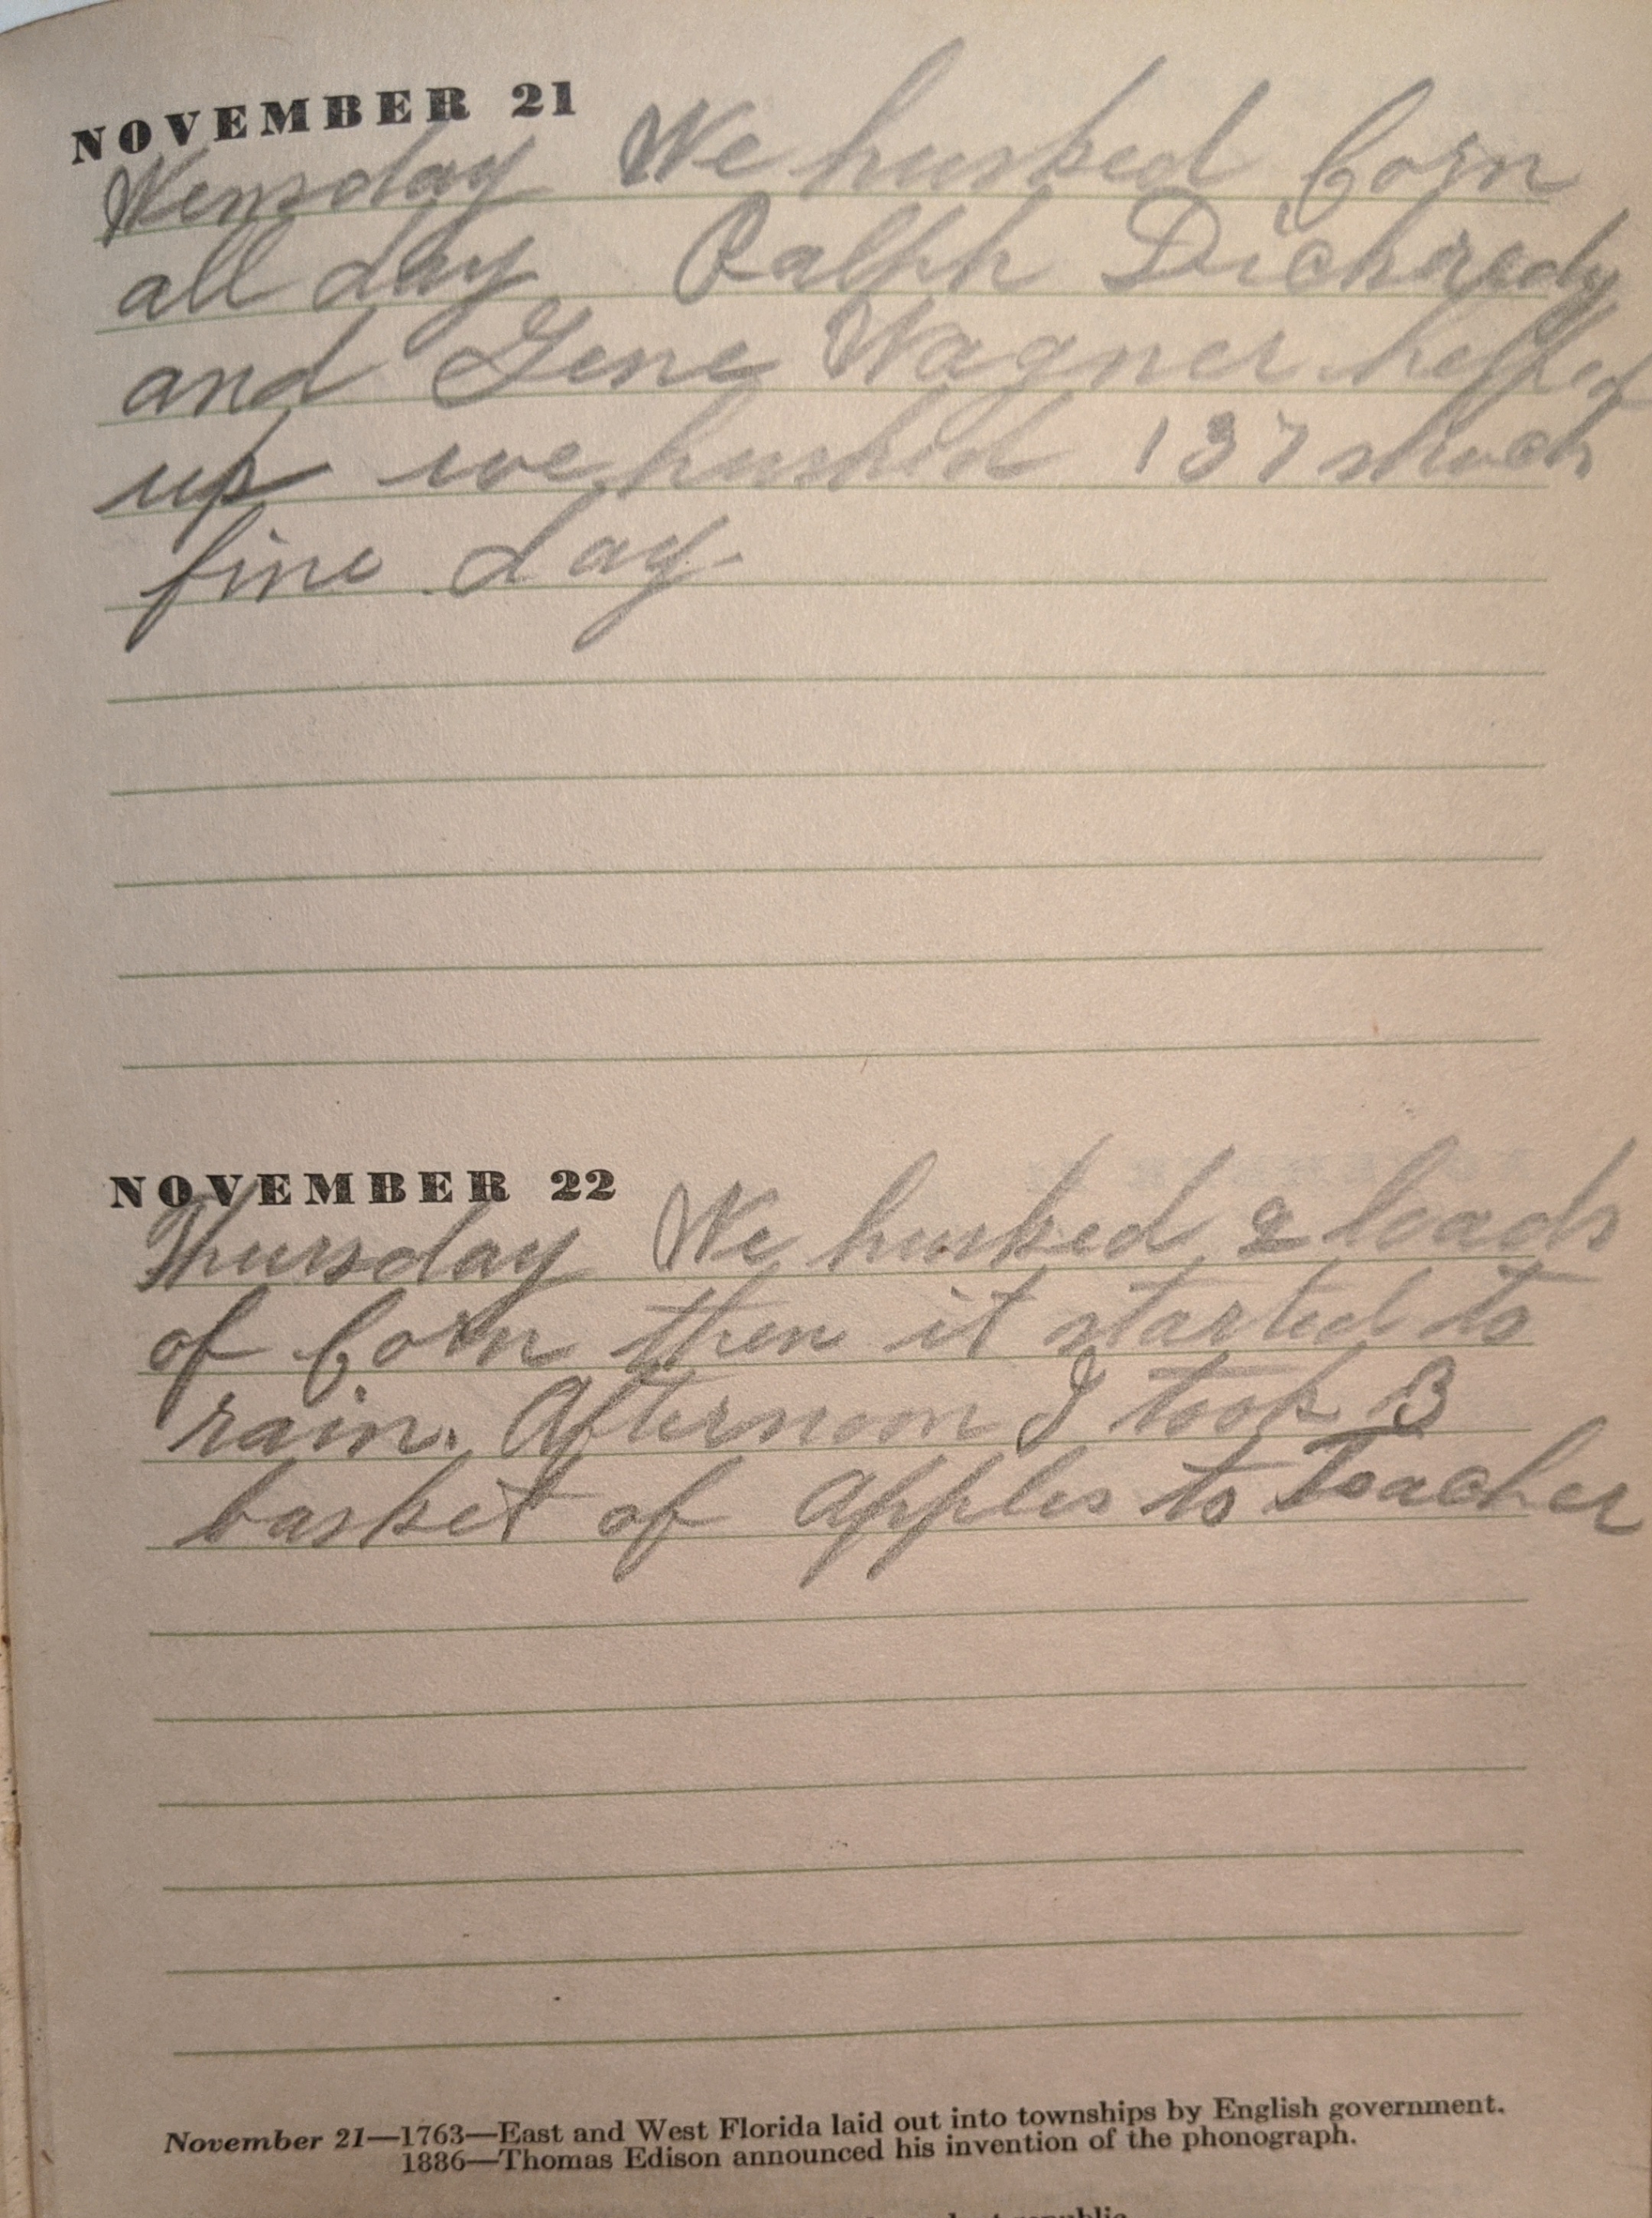 NOVEMBER 21
Wensday We husked Corn
all day Ralph
and Gene Wagner helped
up we husked 137 shuck
fine day
NOVEMBER 22
Thursday We husked 2 loads
of Corn then it started to
rain. Afternoon I took 13
basket of Apples to Teacher
November 21—1763—East and West Florida laid out into townships by English government.
1886—Thomas Edison announced his invention of the phonograph.